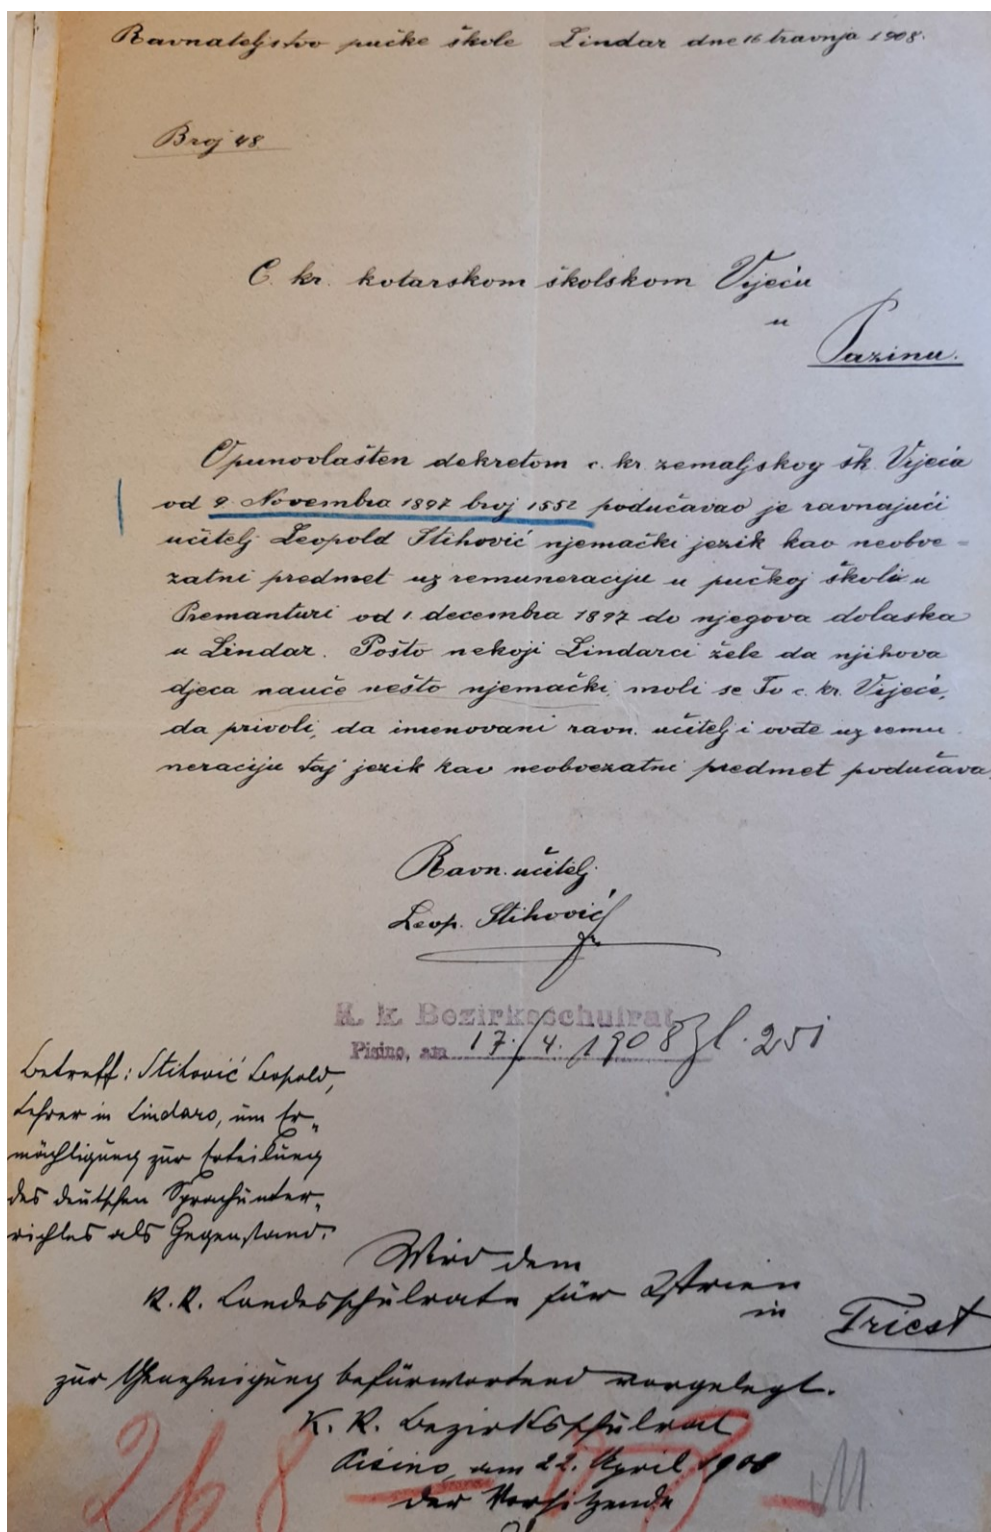 Ravnateljstvo pučke škole Lindar dne 16 travnja 1908.
Broj 48
C. kr. kotarskom školskom Vijeću
u
Pazinu.
Opunovlašten dekretom c. kr. zemaljskog šk. Vijeća
od 9. Novembra 1897 broj 1552 podučavao je ravnajući
učitelj Leopold Stihović njemački jezik kao neobve-
zatni predmet uz remuneraciju u pučkoj školi u
Premanturi od 1. decembra 1897 do njegova dolaska
u Lindar. Pošto nekoji Lindarci žele da njihova
djeca nauče nešto njemački, moli se To c. kr. Vijeće,
da privoli, da imenovani ravn. učitelj i ovde uz remu
neraciju taj jezik kao neobvezatni predmet podučava
Ravn. učitelj
Leop. Stihović
K. k. Bezirksschulrat
Pisino, am 17./4. 1908 Zl. 251
Betreff: Stihović Leopold,
Lehrer in Lindaro, um Er-
mächtigung zur Erteilung
des deutschen Sprachunter-
richtes als Gegenstand.
Wird dem
K.K. Landesschulrate für Istrien
in
Triest
zur Genehmigung befürwortend vorgelegt.
K. K. Bezirksschulrat
Pisino, am 22. April 1908
der Vorsitzende
268